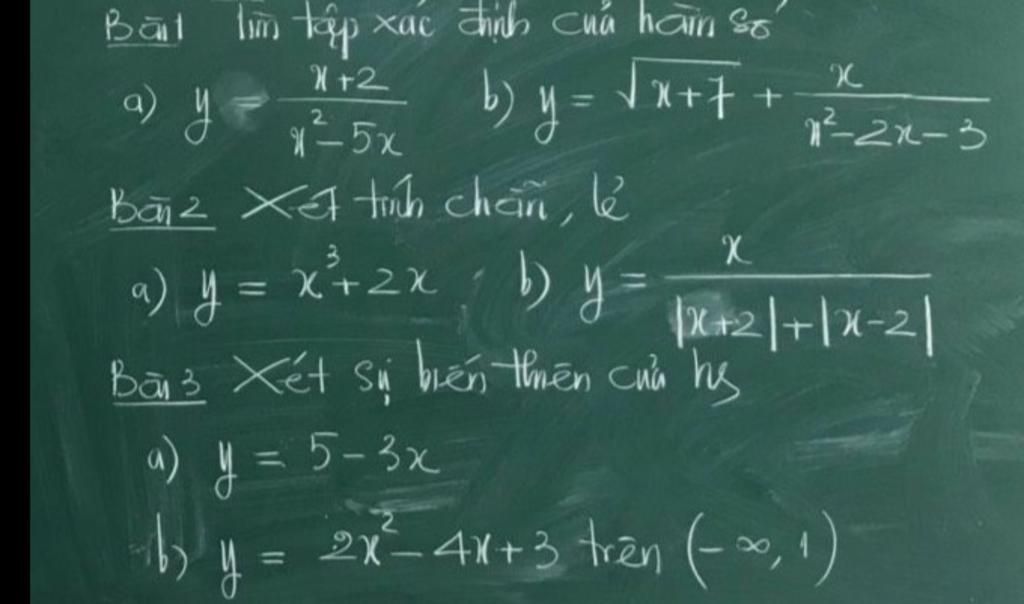 Bài 1 Tìm tập xác định của hàm số
a) y = (x+2)/(x²-5x) b) y = √(x+7) + x/(x²-2x-3)
Bài 2 Xét tính chẵn, lẻ
a) y = x³+2x b) y = x/(|x+2|+|x-2|)
Bài 3 Xét sự biến thiên của hs
a) y = 5-3x
b) y = 2x²-4x+3 trên (-∞, 1)